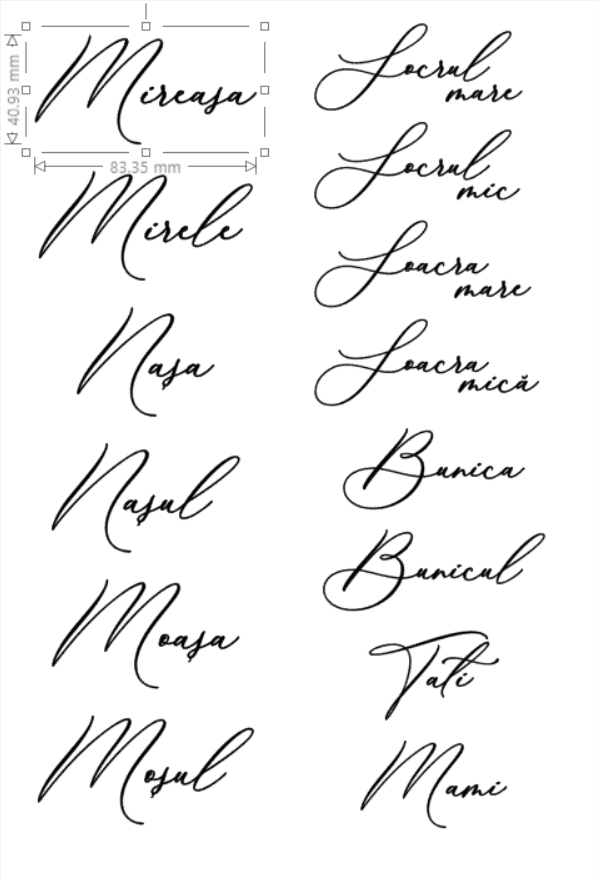 40.93 mm
Mireașa
83.35 mm
Mirele
Nașa
Nașul
Moașa
Moșul
Socrul
mare
Socrul
mic
Soacra
mare
Soacra
mică
Bunica
Bunicul
Tati
Mami